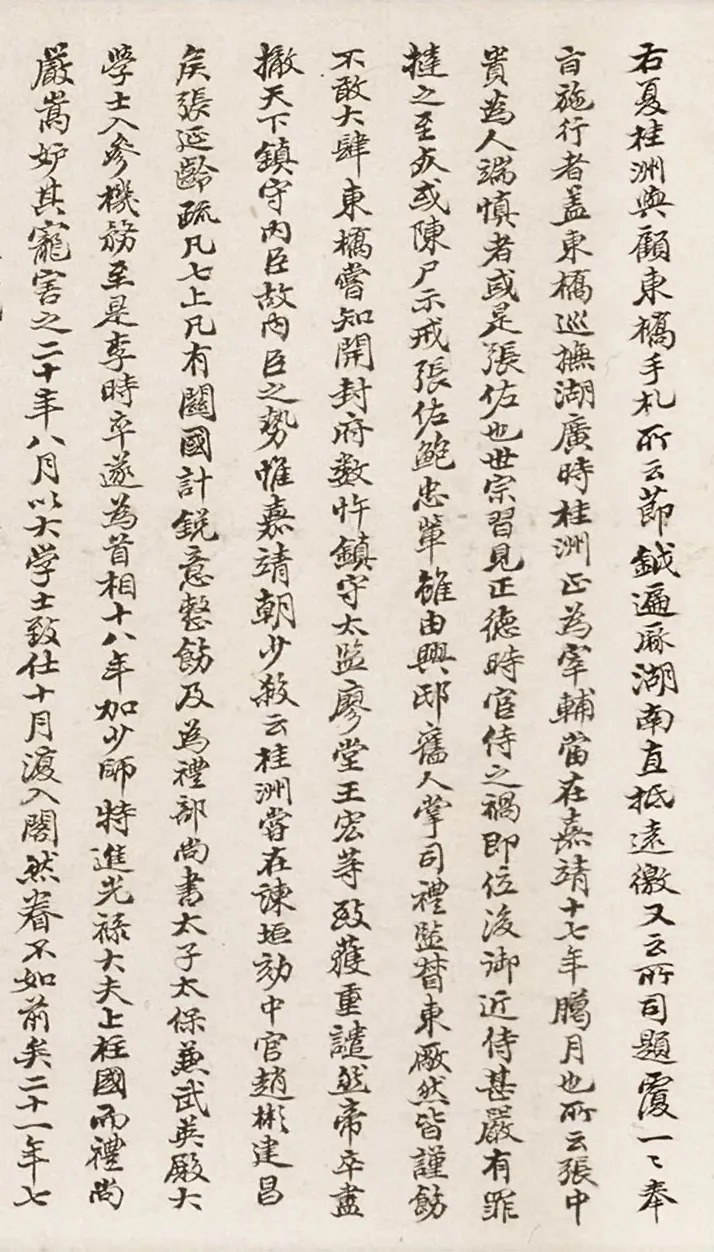 右夏桂洲與顧東橋手札所云節鉞遍厤湖南直抵遠徼又云所司題覆一〻奉
旨施行者蓋東橋巡撫湖廣時桂洲正為宰輔當在嘉靖十七年臈月也所云張中
貴為人端慎者或是張佐也世宗習見正德時宦侍之禍即位後御近侍甚嚴有罪
撻之至死或陳尸示戒張佐鮑忠輩雖由興邸舊人掌司禮監督東廠然皆謹飭
不敢大肆東橋嘗知開封府數忤鎮守太監廖堂王宏等致獲重譴然帝卒盡
撤天下鎮守內臣故內臣之勢惟嘉靖朝少殺云桂洲嘗在諫垣劾中官趙彬建昌
矦張延齡疏凡七上凡有關國計銳意整飭及為禮部尚書太子太保兼武英殿大
學士入參機務至是李時卒遂為首相十八年加少師特進光祿大夫上柱國而禮尚
嚴嵩妒其寵害之二十年八月以大学士致仕十月復入閣然眷不如前矣二十一年七